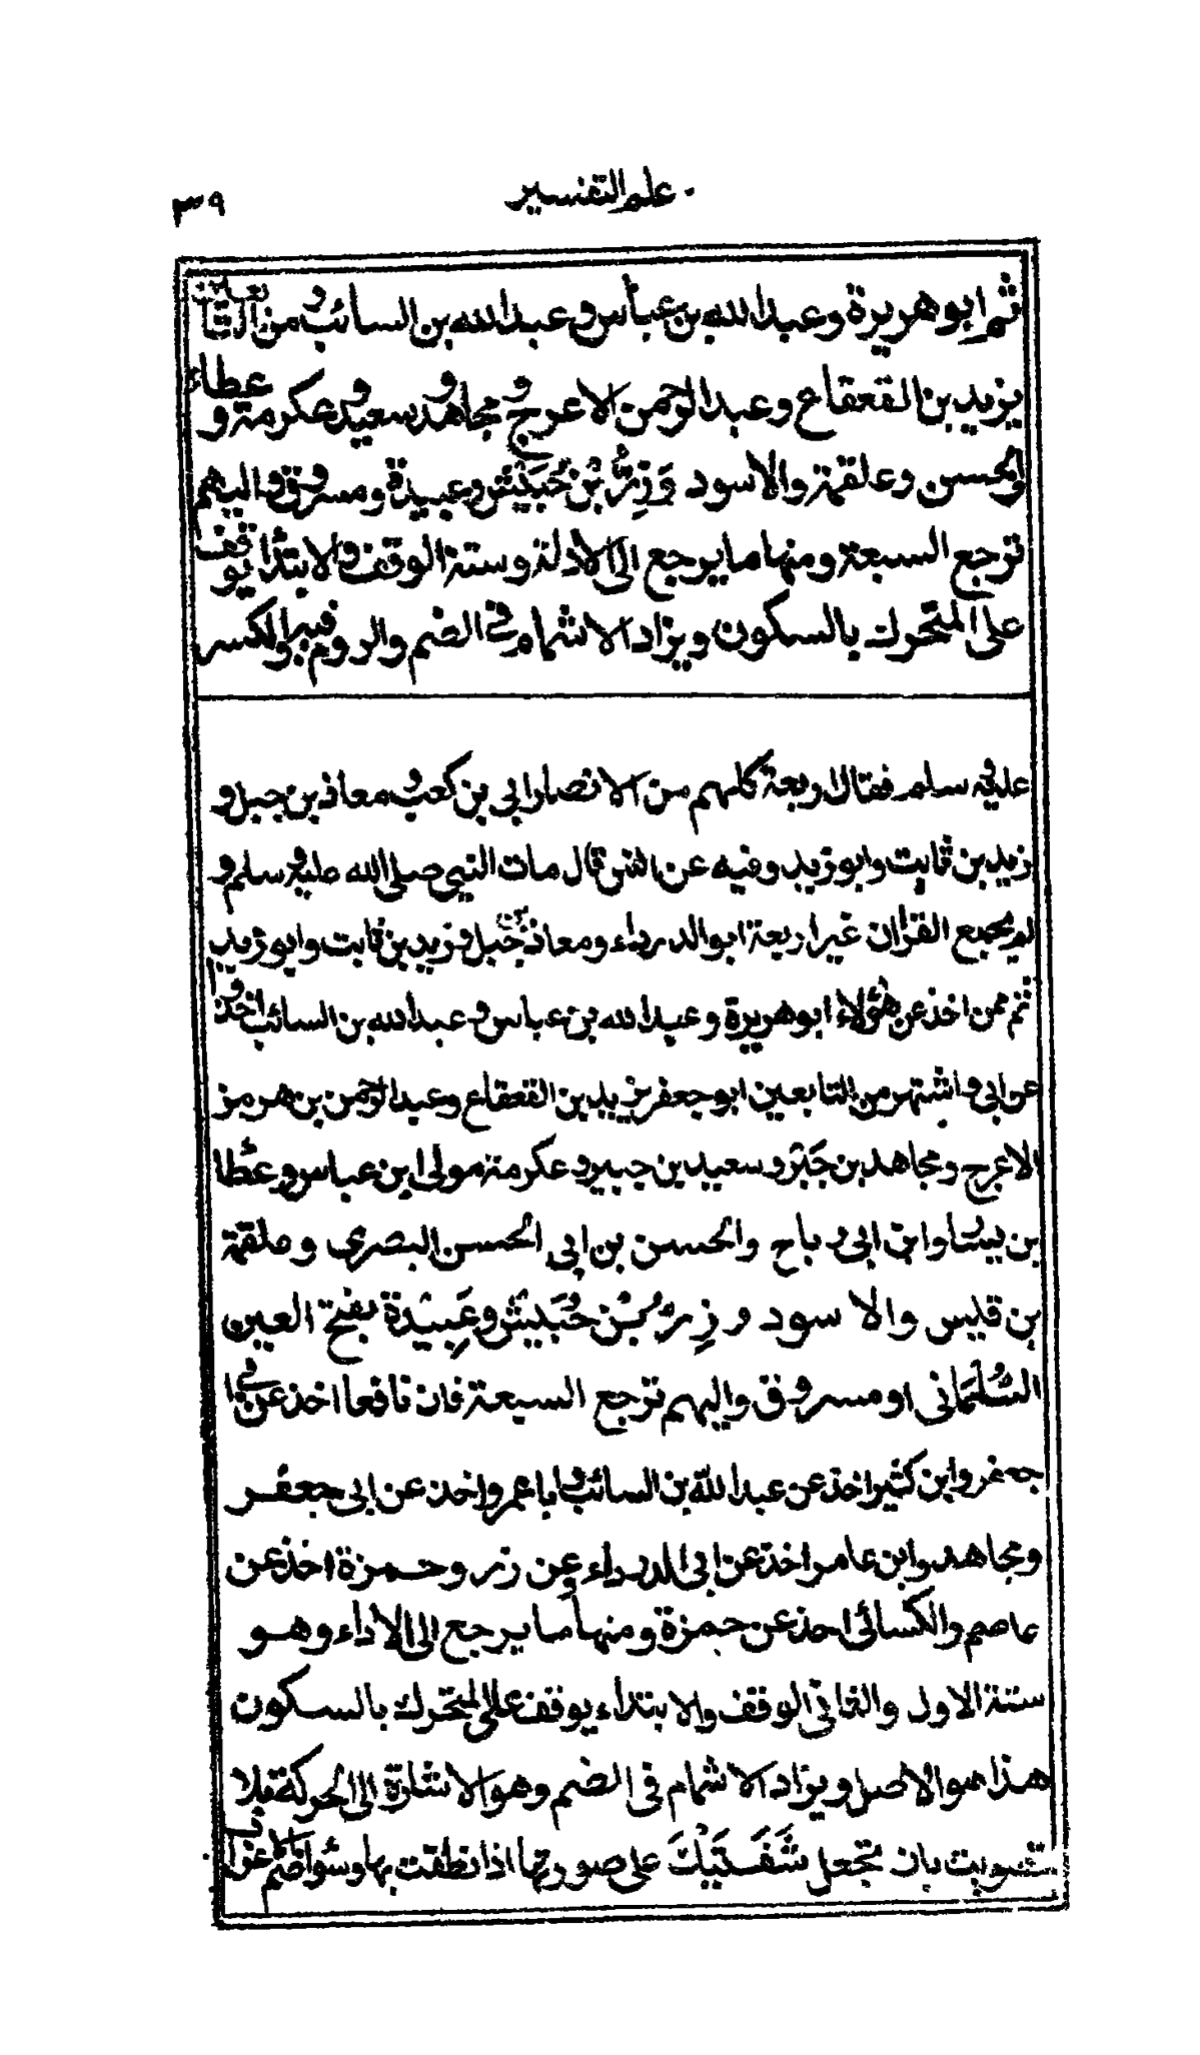 علم التفسير
٣٩
ثم ابو هريرة وعبد الله بن عباس وعبد الله بن السائب ومن التابعين
يزيد بن القعقاع وعبد الرحمن الاعرج ومجاهد وسعيد وعكرمة وعطاء
والحسن وعلقمة والاسود وَزِرُّ بْن حُبَيْش وعبيدة ومسروق واليهم
ترجع السبعة ومنها ما يرجع الى الأدلة وستة الوقف والابتدأ يوقف
على المتحرك بالسكون ويزاد الاشمام في الضم والروم فيه والكسر
عليه وسلم فقال اربعة كلهم من الانصار ابي بن كعب ومعاذ بن جبل و
زيد بن ثابت وابو زيد وفيه عن انس قال مات النبي صلى الله عليه وسلم و
لم يجمع القرآن غير اربعة ابو الدرداء ومعاذ بن جبل وزيد بن ثابت وابو زيد
ثم ممن اخذ عن هؤلاء ابو هريرة وعبد الله بن عباس وعبد الله بن السائب اخذوا
عن ابي واشتهر من التابعين ابو جعفر يزيد بن القعقاع وعبد الرحمن بن هرمز
الاعرج ومجاهد بن جَبْر وسعيد بن جبير وعكرمة مولى ابن عباس وعطا
بن يسار وابن ابي رباح والحسن بن ابي الحسن البصري وعلقمة
بن قليس والاسود وزِرُّ بْن حُبَيْش وعَبِيْدة بفتح العين
السَّلْمَاني ومسروق واليهم ترجع السبعة فان نافعا اخذ عن ابي
جعفر وابن كثير اخذ عن عبد الله بن السائب وابا عمرو اخذ عن ابي جعفر
ومجاهد وابن عامر اخذ عن ابي الدرداء وعن زر وحمزة اخذ عن
عاصم والكسائي اخذ عن حمزة ومنها ما يرجع الى الاداء وهو
ستة الاول والثاني الوقف والابتداء يوقف على المتحرك بالسكون
هذا هو الاصل ويزاد الاشمام في الضم وهو الاشارة الى الحركة بلا
تصويت بان تجعل شَفَتَيْكَ على صورتها اذا نطقت بها وسواء